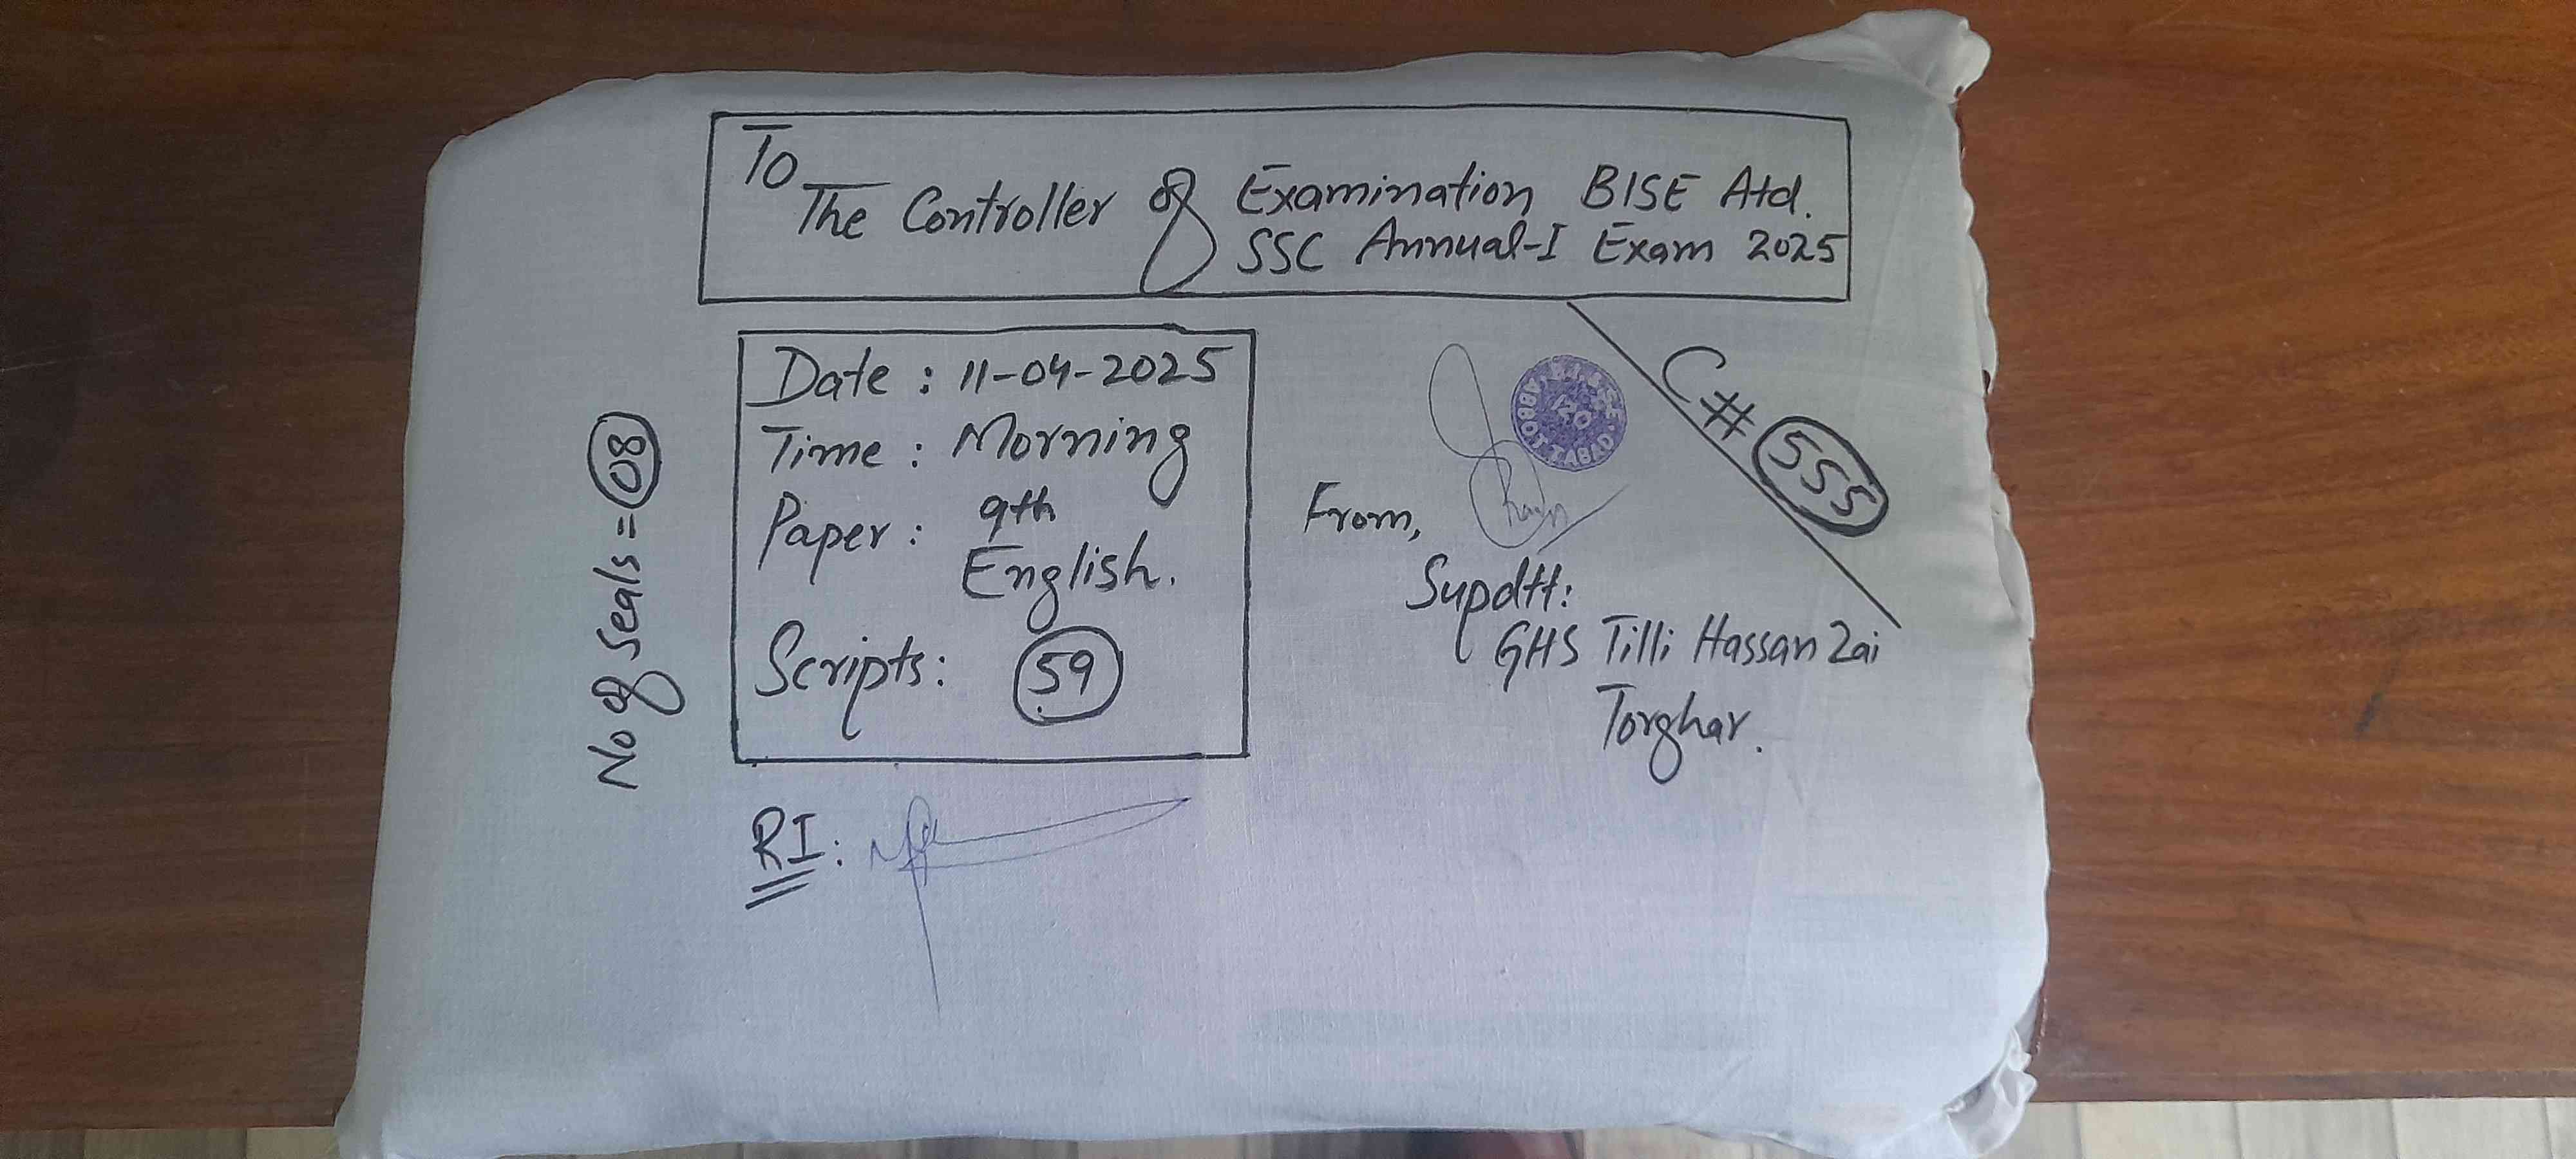 To
The Controller of Examination BISE Atd.
SSC Annual-I Exam 2025
C# 555
Date : 11-04-2025
Time : Morning
Paper : 9th
English.
Scripts : 59
No of Seals = 08
From,
Supdtt:
GHS Tilli Hassan Zai
Torghar.
RI:
ABBOTTABAD